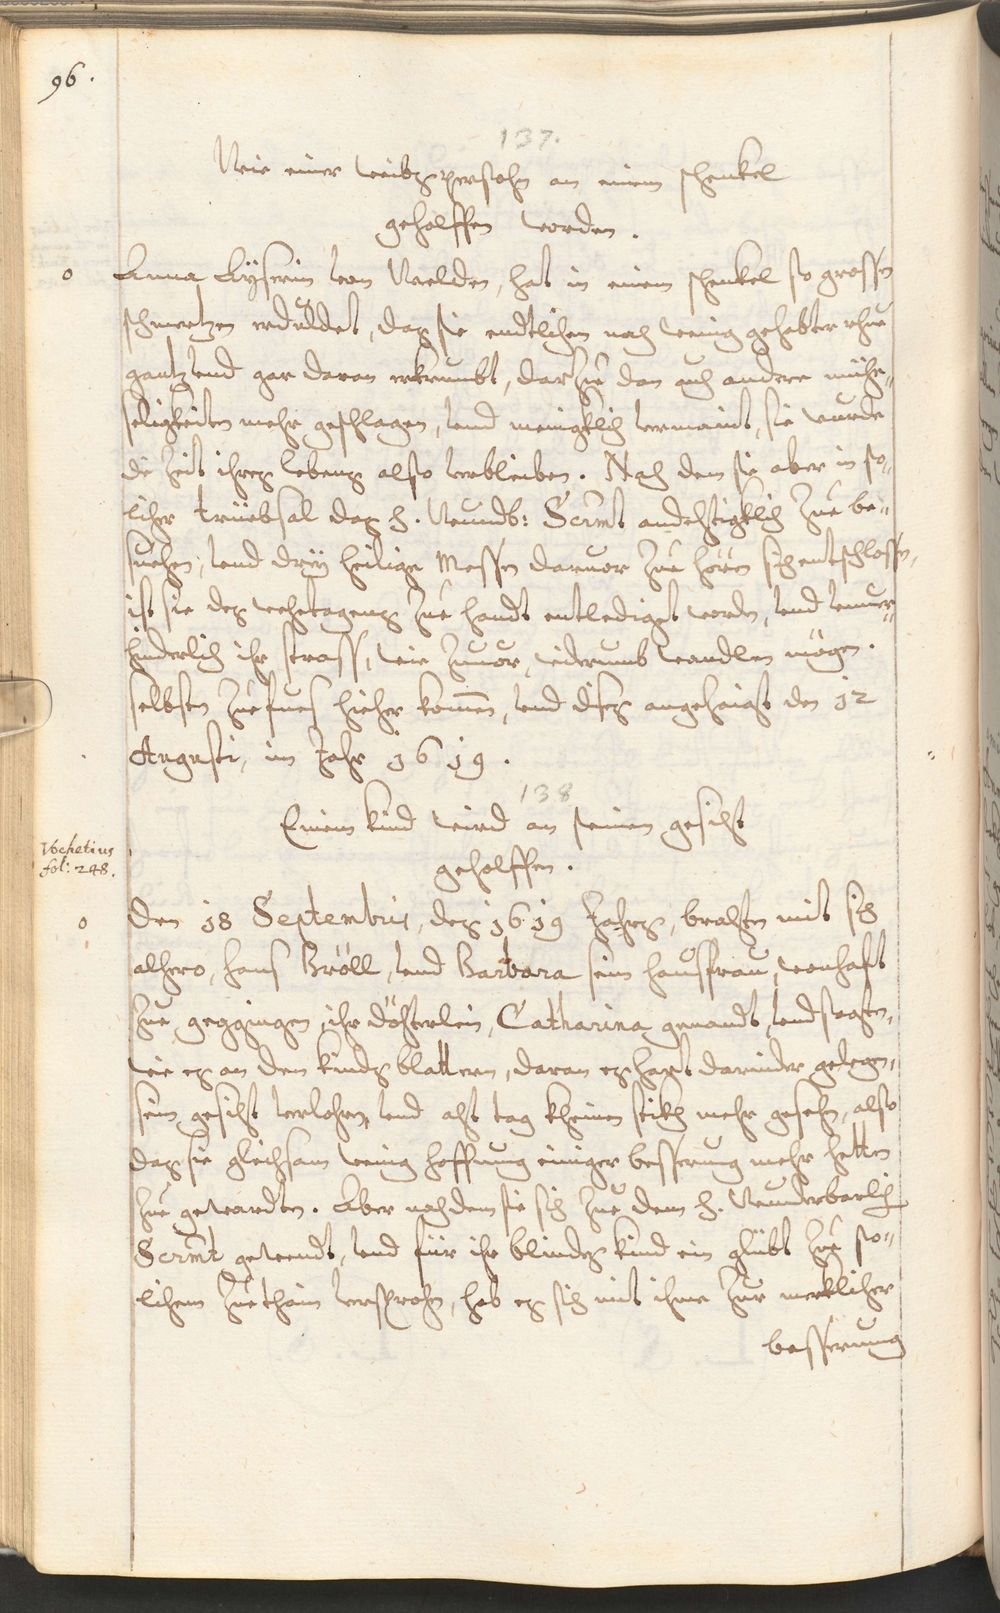 96.
137.
Wie einer weibspersohn an einem schenkel
geholffen worden.
o Anna Kyserin von Welden, hat in einem schenkel so grossen
schmertzen erduldet, das sie endtlichen nach wenig gehabter rhue
gantz vnd gar daran erkrumbt, dar Zue dan auch andere mühe„
seligkeiten mehr geschlagen, vnd menigklich vermaint, sie wurde
die Zeit ihres lebens also verbleiben. Nach dem sie aber in so„
licher trüebsal das h. Wundb: Scrmt andechtigklich Zue be„
suchen, vnd drÿ heilige Messen daruor Zue hören sich entschlossen,
ist sie des wehetagens Zue handt entlediget worden, vnd vnuer„
hinderlich ihr strass, wie Zuuor, widerumb wandlen mögen.
selbsten Zue fues hieher komen, vnd dises angeZaigt den 12
Augusti, im Jahr 1619.
138
Einem kind wird an seinem gesicht
geholffen.
Vochetius
fol: 248.
o Den 18 Septembris, des 1619 Jahrs, brachten mit sich
alhero, Hans Bröll, vnd Barbara sein hausfrau, wonhafft
Zue geggingen, ihr döchterlein, Catharina genandt, vnd sagten,
wie es an den kinds blattern, daran es hart darnider gelegen,
sein gesicht verlohren, vnd acht tag kheinen stich mehr gesehen, also
das sie gleichsam wenig hoffnung einiger besserung mehr hetten
Zue gewardten. Aber nachdem sie sich Zue dem h. Wunderbarlich
Scrmt gewendt, vnd für ihr blindes kind ein glübt Zue so„
lichem Zuethain versprochen, hab es sich mit ihme Zur merklicher
besserung